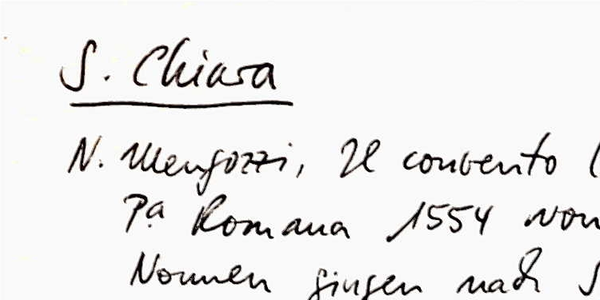 S. Chiara
N. Mengozzi, Il convento (
Pa Romana 1554 von
Nonnen gingen nach S